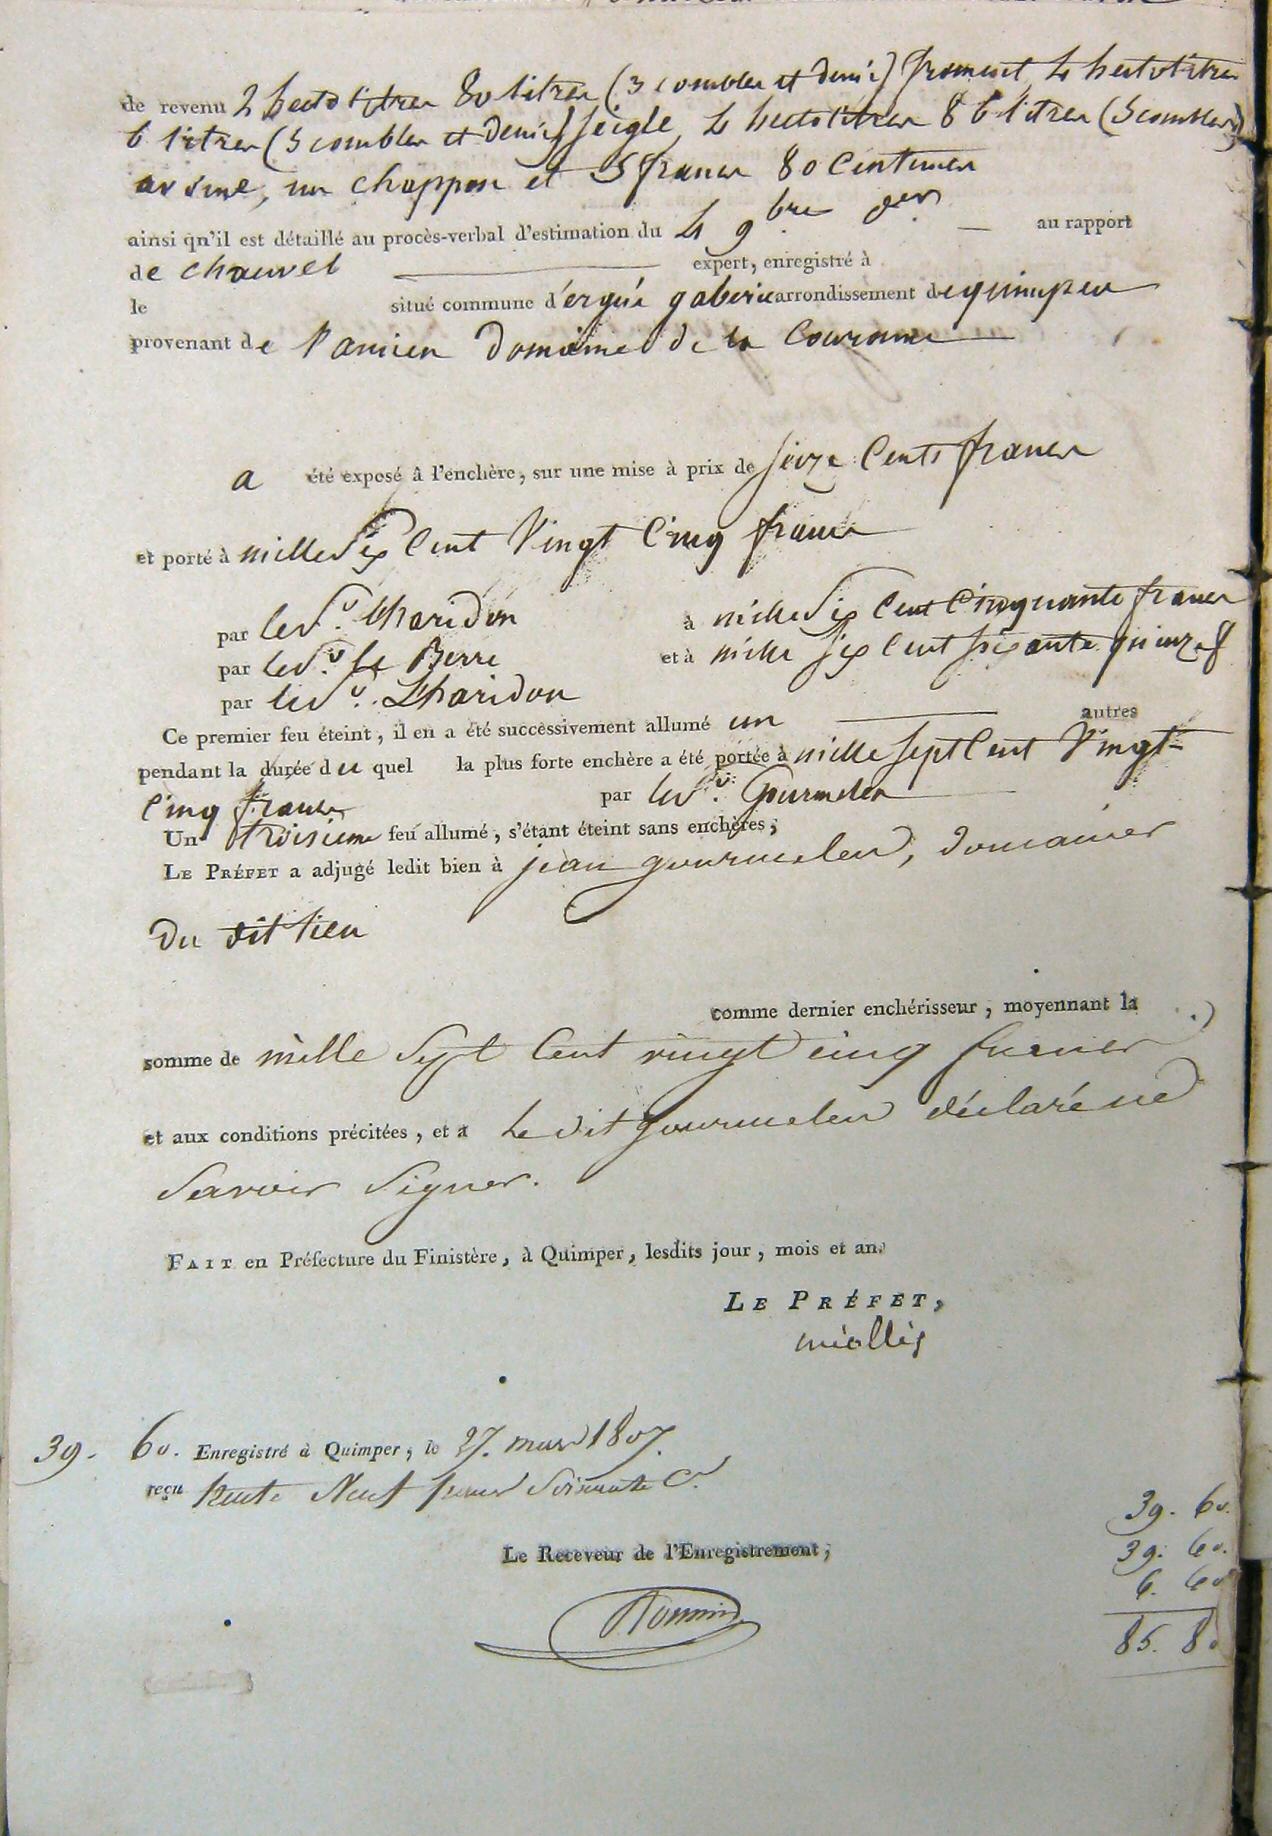 de revenu 2 hectolitres 80 litres (3 combles et demie) froment, 4 hectolitres
6 litres (5 combles et demie) seigle, 4 hectolitres 86 litres (5 combles)
avoine, un chappon et 5 francs 80 centimes
ainsi qu'il est détaillé au procès-verbal d'estimation du 4 9bre der — au rapport
de chauvel — expert, enregistré à
le situé commune d'ergué gaberic arrondissement de quimper
provenant de l'ancien domaine de la Couronne
a été exposé à l'enchère, sur une mise à prix de seize Cents francs
et porté à mille Six Cent Vingt Cinq francs
par le Sr. Lharidon à mille Six Cent Cinquante francs
par le Sr. le Berre et à mille six Cent soixante quinze f
par le Sr. Lharidon
Ce premier feu éteint, il en a été successivement allumé un — autres
pendant la durée du quel la plus forte enchère a été portée à mille sept Cent Vingt-
Cinq francs par le Sr. Gourmelen
Un troisieme feu allumé, s'étant éteint sans enchères;
LE PRÉFET a adjugé ledit bien à jean gourmelen, domanier
du dit lieu
comme dernier enchérisseur, moyennant la
somme de mille Sept Cent vingt cinq francs
et aux conditions précitées, et a le dit gourmelen déclaré ne
Savoir Signer.
FAIT en Préfecture du Finistère, à Quimper, lesdits jour, mois et an.
LE PRÉFET,
miollis
39. 60. Enregistré à Quimper, le 27. mars 1807.
reçu trente Neuf francs Soixante Cs.
39. 60.
Le Receveur de l'Enregistrement,
39. 60.
6. 60
85. 80